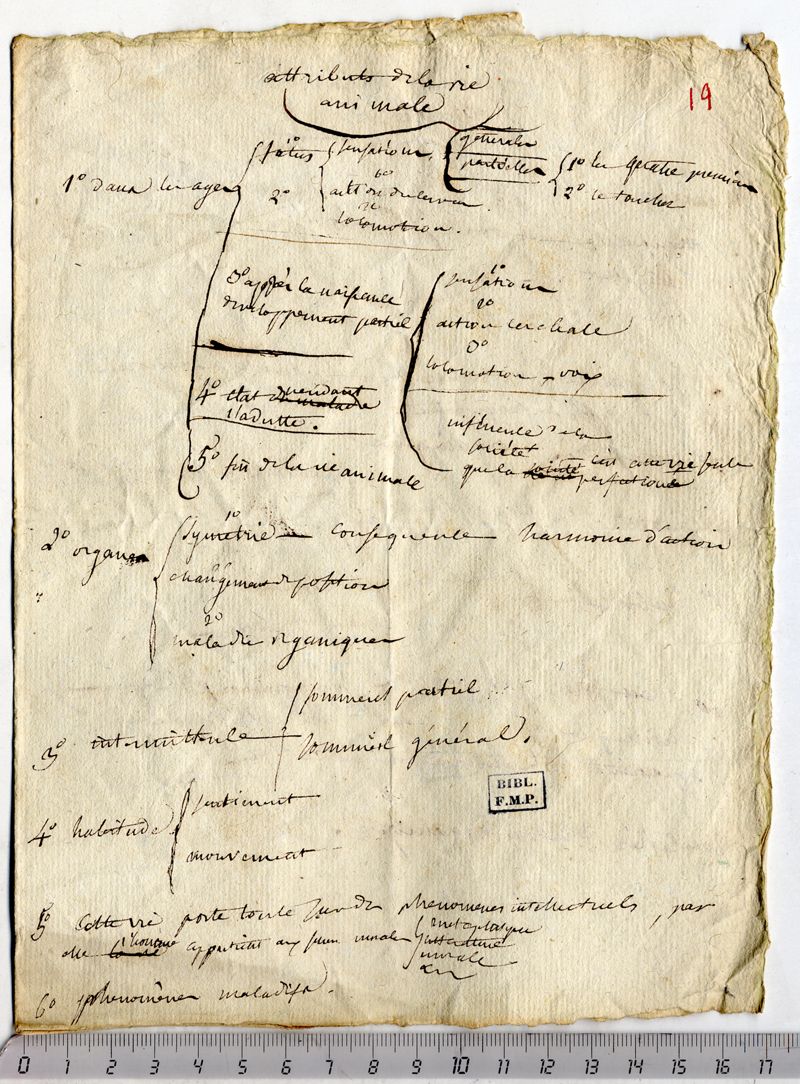 attributs de la vie
animale
19
1° dans les ages
1°
fœtus
2°
sensations
1°
action du cerveau
2°
locomotion.
générales
partielles
1° les quatre premiers
2° le toucher
3° après la naissance
développement partiel
1°
sensations
2°
action cérébrale
3°
locomotion, voix
4° état
l'adulte.
influence de la
société
que la perfectionne
5° fin de la vie animale
2° organes
1°
symétrie conséquence harmonie d'action
changement de position
2°
maladies organiques
3° intermittence
sommeil partiel
sommeil général.
4° habitude
sentiment
mouvement
BIBL.
F.M.P.
5° Cette vie porte toute sur des phenomenes intellectuels, par
elle l'homme appartient aux
metaphysique
litterature
morale
&c
6° phenomènes maladifs.
0 1 2 3 4 5 6 7 8 9 10 11 12 13 14 15 16 17